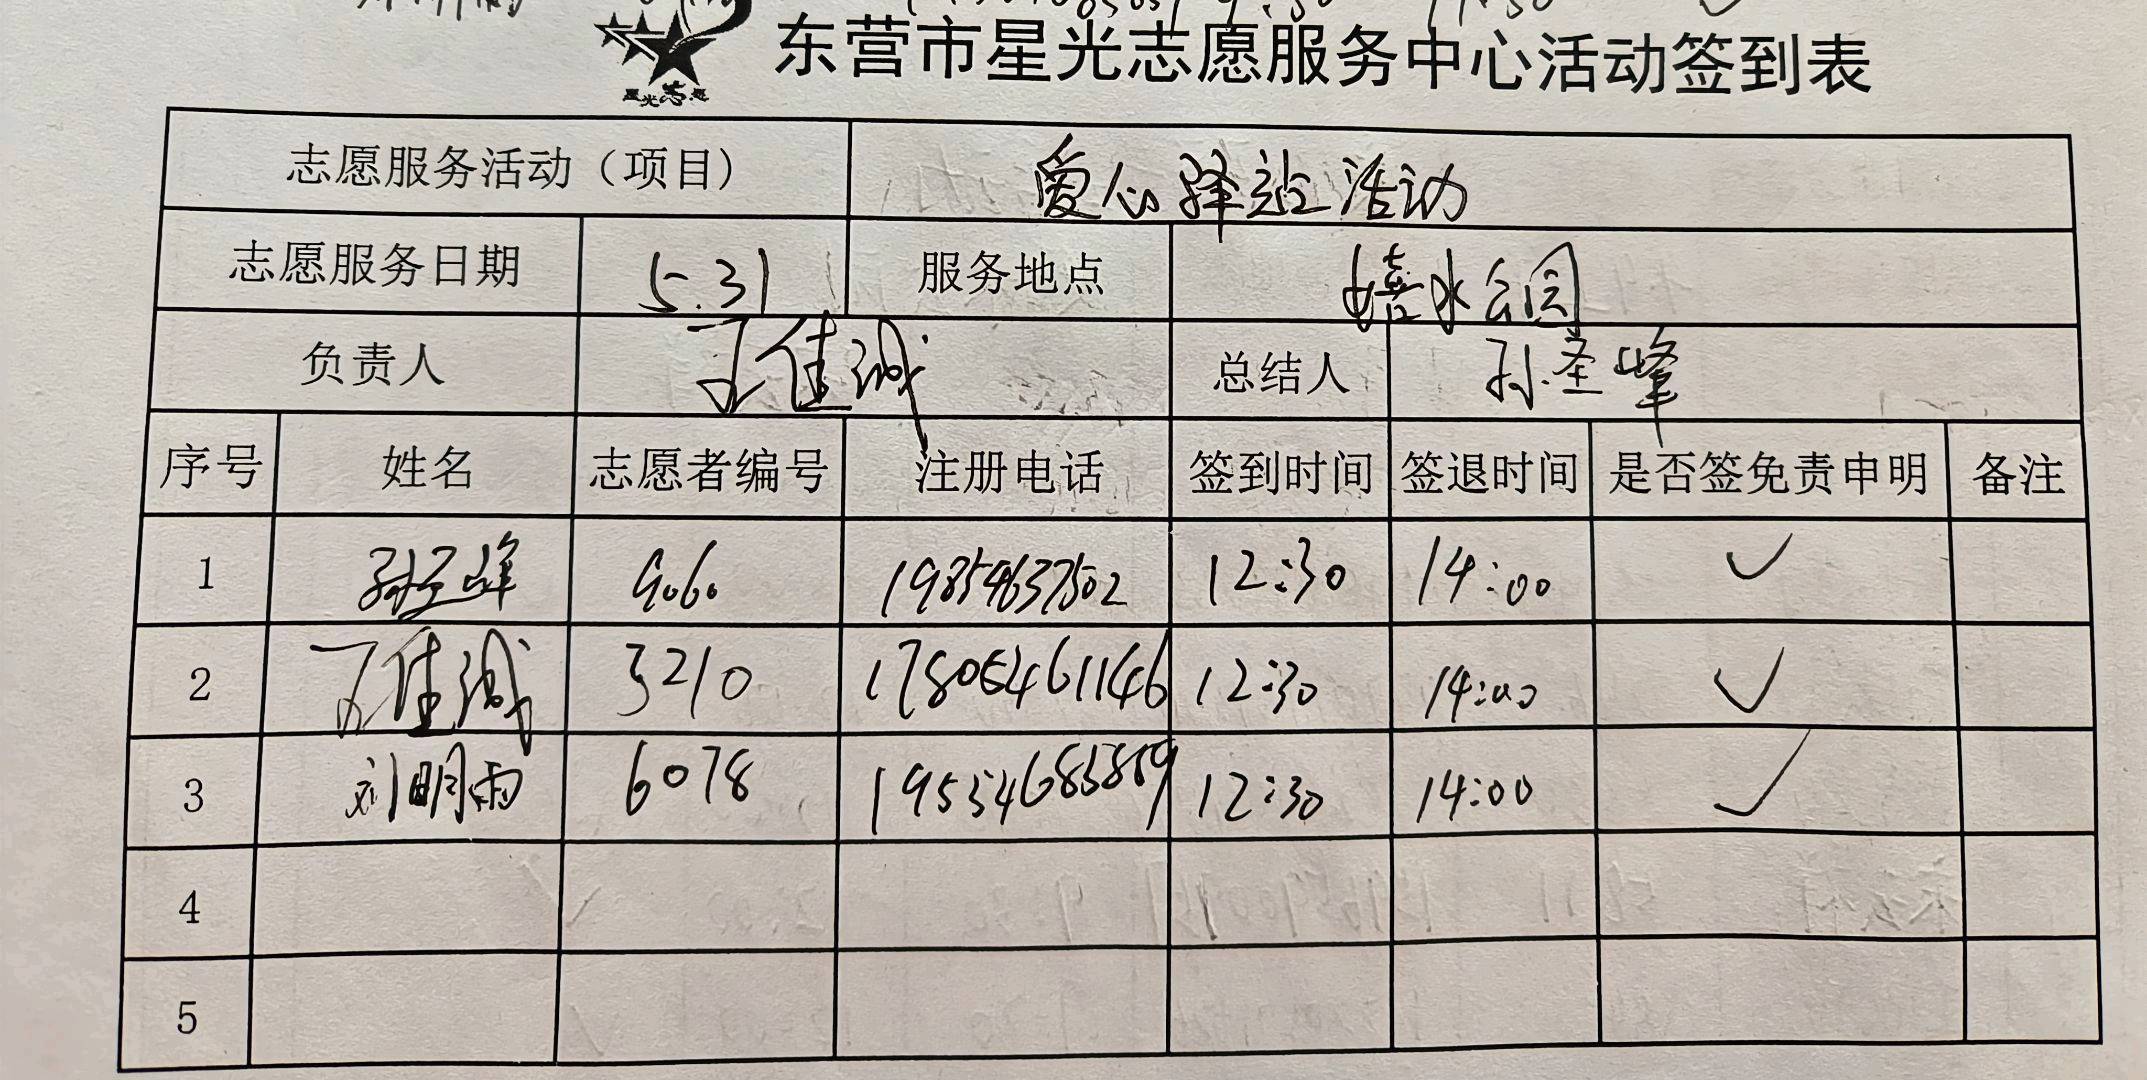 东营市星光志愿服务中心活动签到表
星光志愿
志愿服务活动（项目） 爱心驿站活动
志愿服务日期 5.31 服务地点 嬉水公园
负责人 丁佳诚 总结人 孙圣峰
序号 姓名 志愿者编号 注册电话 签到时间 签退时间 是否签免责申明 备注
1 孙圣峰 9060 19854637502 12:30 14:00 ✓
2 丁佳诚 3210 17806461146 12:30 14:00 ✓
3 刘明雨 6078 12:30 14:00 ✓
4
5